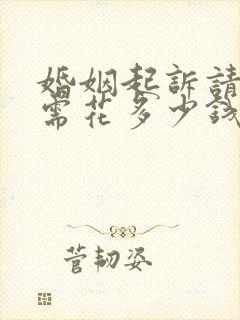 婚姻起訴請
需花多少錢
菅韧姿